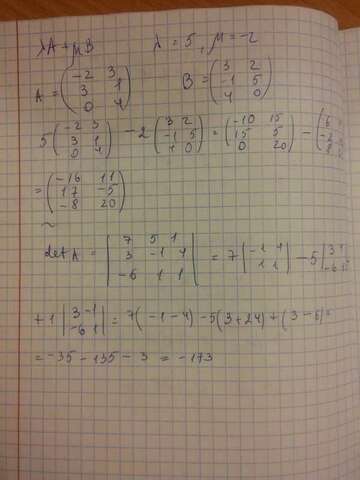 λA + μB λ = 5, μ = -2
A = (-2 3; 3 1; 0 4) B = (3 2; -1 5; 4 0)
5 (-2 3; 3 1; 0 4) - 2 (3 2; -1 5; 4 0) = (-10 15; 15 5; 0 20) - (6; -2; 8
= (-16 11; 17 -5; -8 20)
det A = |7 5 1; 3 -1 4; -6 1 1| = 7 |-1 4; 1 1| - 5 |3 4; -6 1|
+ 1 |3 -1; -6 1| = 7(-1-4) - 5(3+24) + (3-6) =
= -35 - 135 - 3 = -173